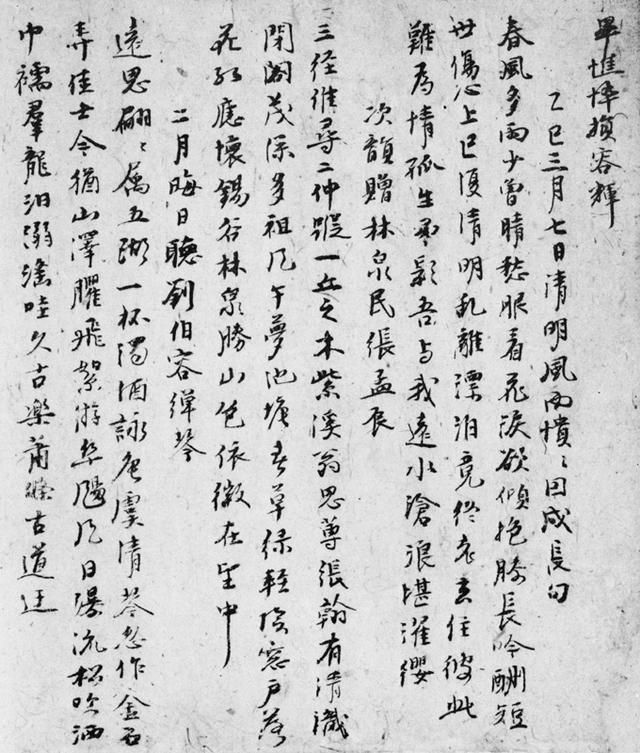 畢憔悴損容輝
乙巳三月七日清明風雨憒〻因成長句
春風多雨少曾晴愁眼看花淚欲傾抱膝長吟酬短
世傷心上巳復清明亂離漂泊竟終老去住彼此
難為情孤生吊影吾與我遠水滄浪堪濯纓
次韻贈林泉民張孟辰
三徑誰尋二仲蹤一丘之木紫溪翁思蓴張翰有清識
閉閣茂深多祖風午夢池塘春草綠輕陰窗戶落
花紅應懷錫谷林泉勝山色依微在望中
二月晦日聽劉伯容彈琴
遠思翩〻屬五湖一杯濁酒詠唐虞清琴忽作金石
弄佳士今猶山澤臞飛絮游絲颺風日瀑流松吹洒
巾襦羣龍汨溺滛哇久古樂蕭條古道迂